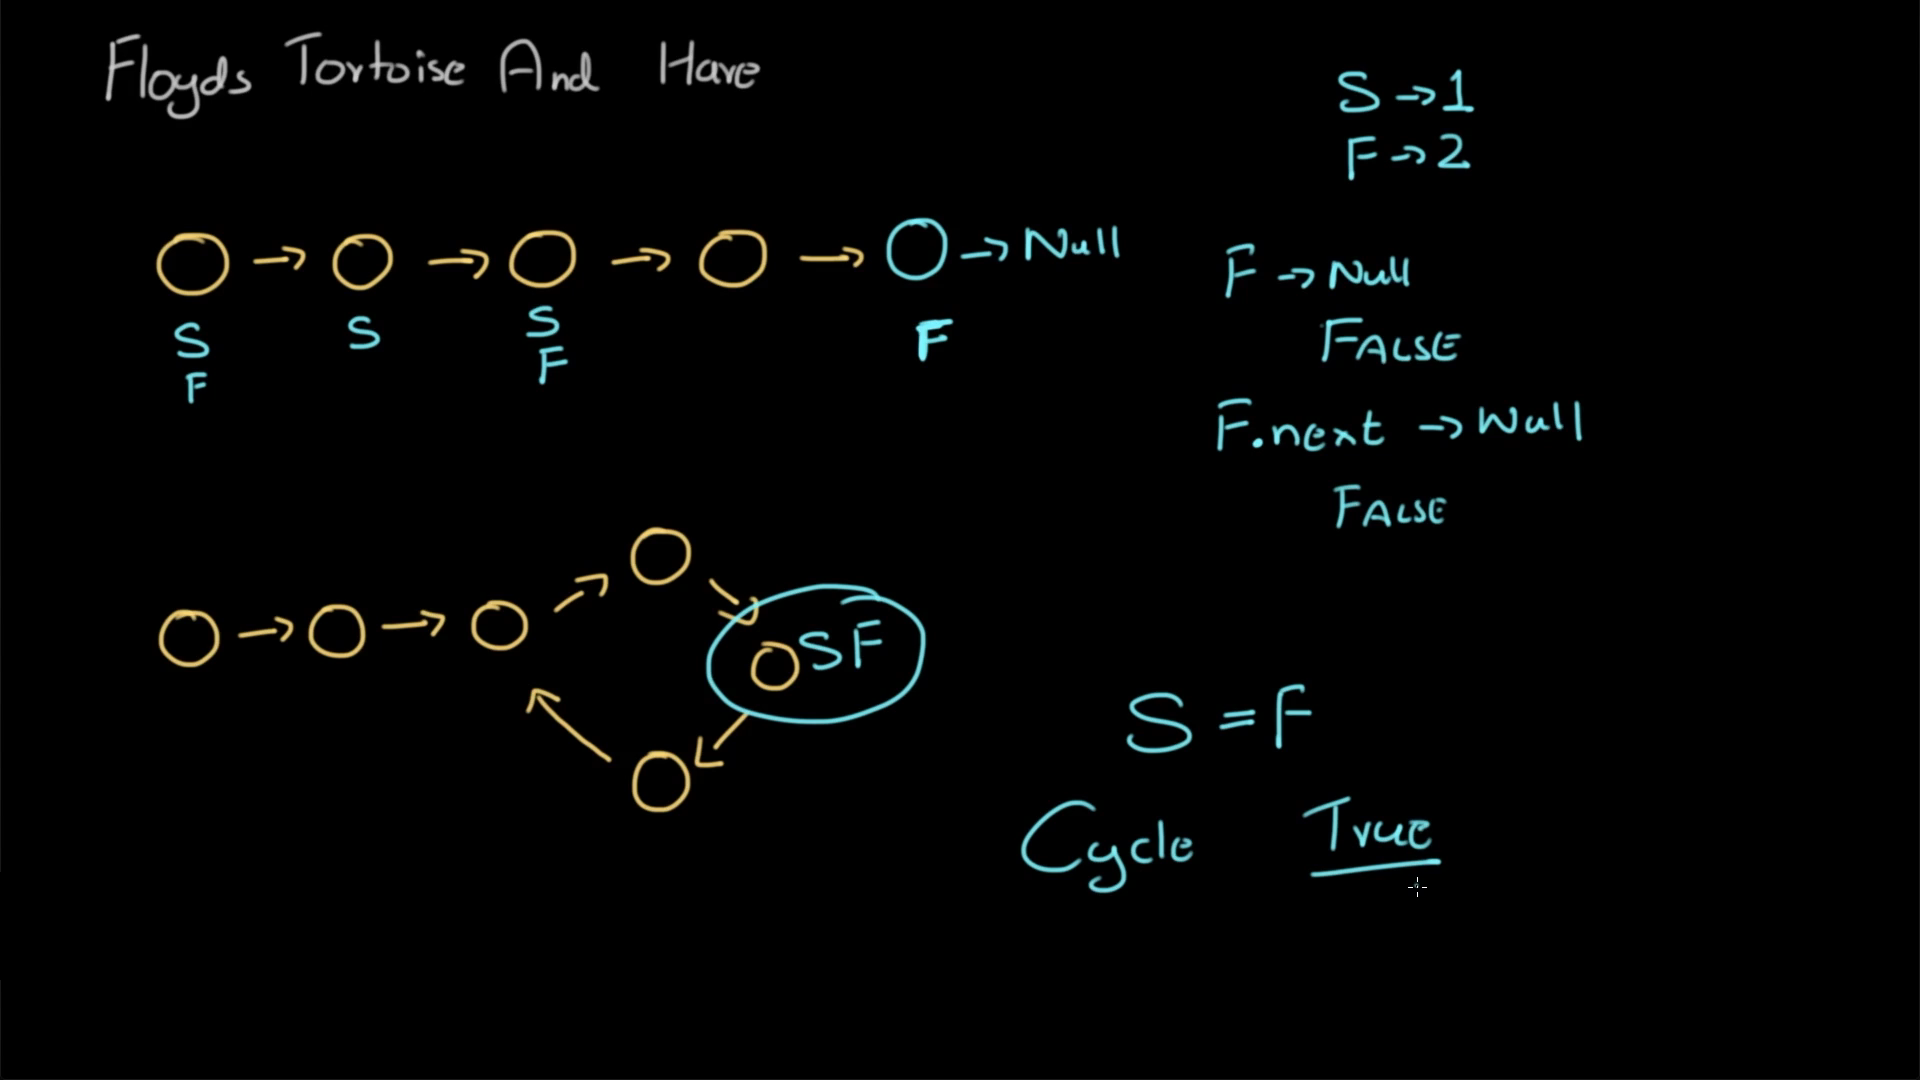 Floyds Tortoise And Hare
S → 1
F → 2
→ → → → → Null
S S S F
F F
F → Null
FALSE
F.next → Null
FALSE
SF
S = F
Cycle True